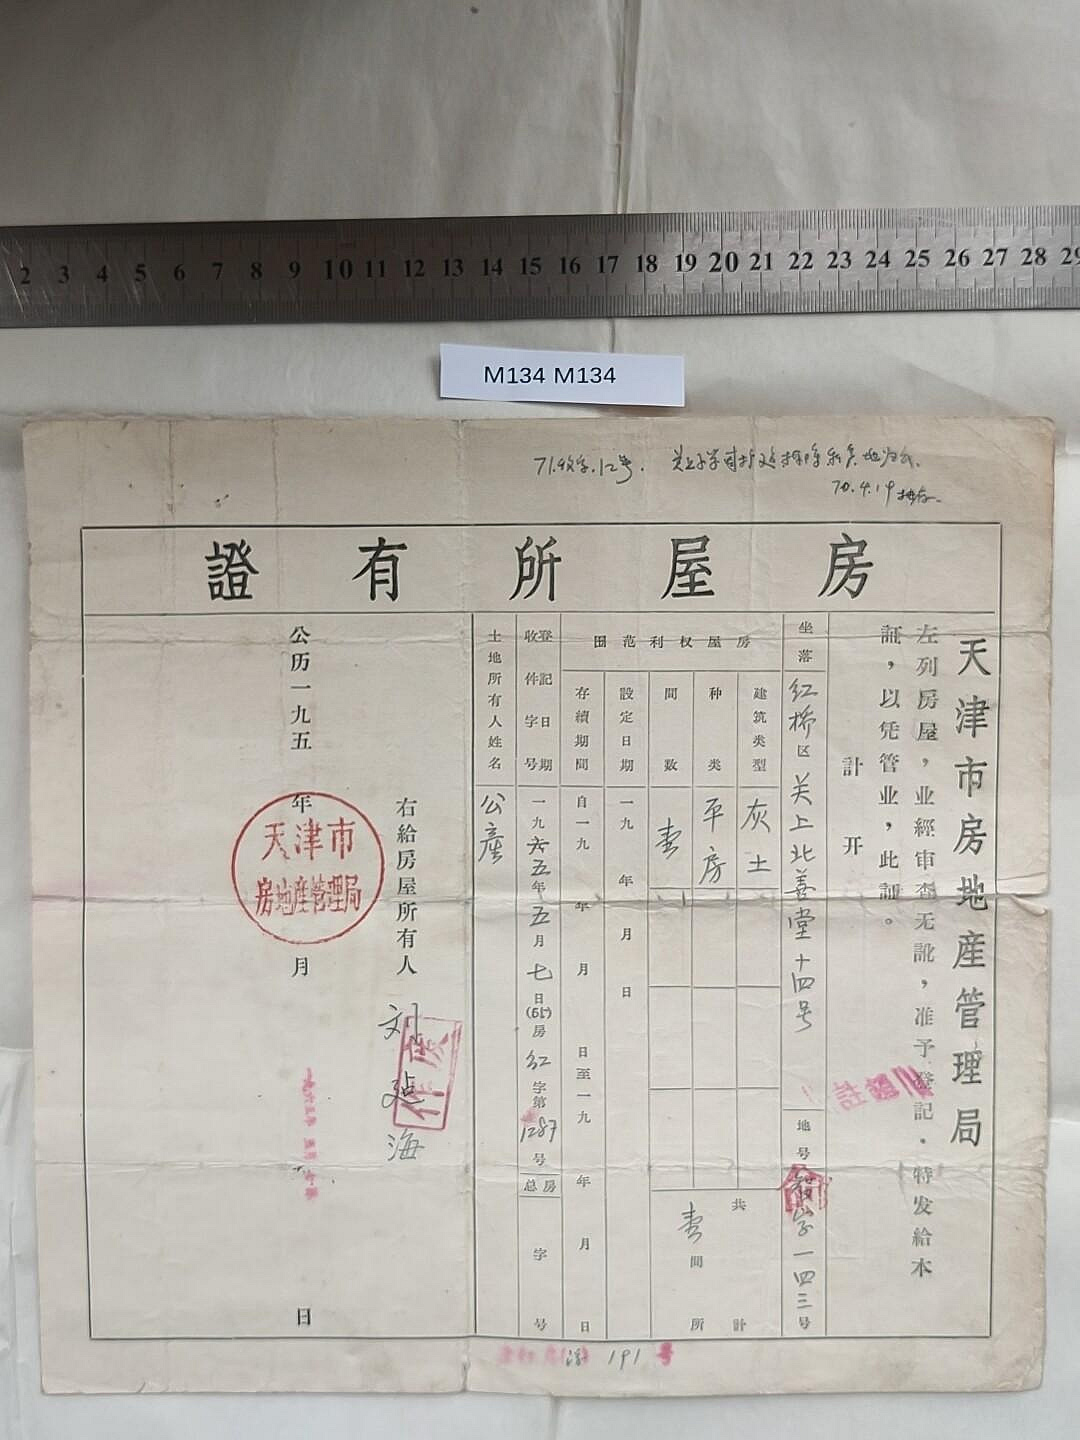 2 3 4 5 6 7 8 9 10 11 12 13 14 15 16 17 18 19 20 21 22 23 24 25 26 27 28 29
M134 M134
71.收字.12号.
70.4.19
證有所屋房
天津市房地産管理局
左列房屋，业經审查无訛，准予登記．特发給本
証，以凭管业，此証。
計开
坐落 红桥区关上北善堂十四号
地号 字一四三号
房屋权利范囲
建筑类型 灰土
种类 平房
間数 壹
共計 壹 間 所
設定日期 一九 年 月 日
存續期間 自一九 年 月 日至一九 年 月 日
登記日期 一九六五年五月七日
收件字号 (65)房红字第1287号
总房 字 号
土地所有人姓名 公產
右給房屋所有人 刘 海
作废
註銷
公历一九五 年 月 日
天津市
房地産管理局
191 号